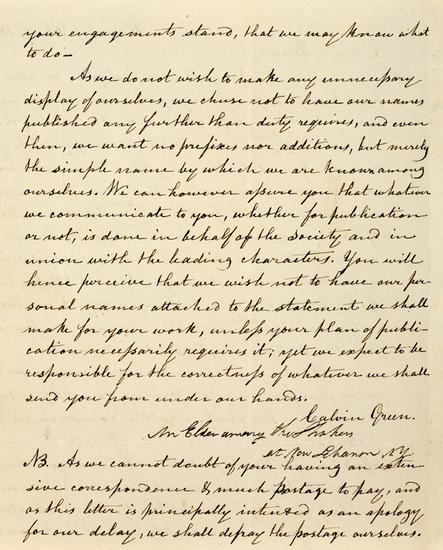 your engagements stand, that we may know what
to do—
As we do not wish to make any unnecessary
display of ourselves, we chuse not to have our names
published any further than duty requires, and even
then, we want no prefixes nor additions, but merely
the simple name by which we are known among
ourselves. We can however assure you that whatever
we communicate to you, whether for publication
or not, is done in behalf of the society and in
union with the leading characters. You will
hence perceive that we wish not to have our per-
sonal names attached to the statement we shall
make for your work, unless your plan of publi-
cation necessarily requires it; yet we expect to be
responsible for the correctness of whatever we shall
send you from under our hands.
Calvin Green.
An Elder among the Shakers
at New Lebanon NY
NB. As we cannot doubt of your having an exten
sive correspondence & much postage to pay, and
as this letter is principally intended as an apology
for our delay, we shall defray the postage ourselves.